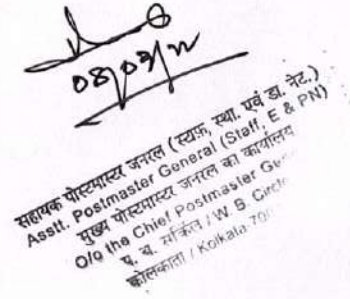 08/03/22
सहायक पोस्टमास्टर जनरल (स्टाफ, स्था. एवं डा. नेट.)
Asstt. Postmaster General (Staff, E & PN)
मुख्य पोस्टमास्टर जनरल का कार्यालय
O/o the Chief Postmaster
प. बं. सर्किल / W. B. Circle
कोलकाता / Kolkata-700